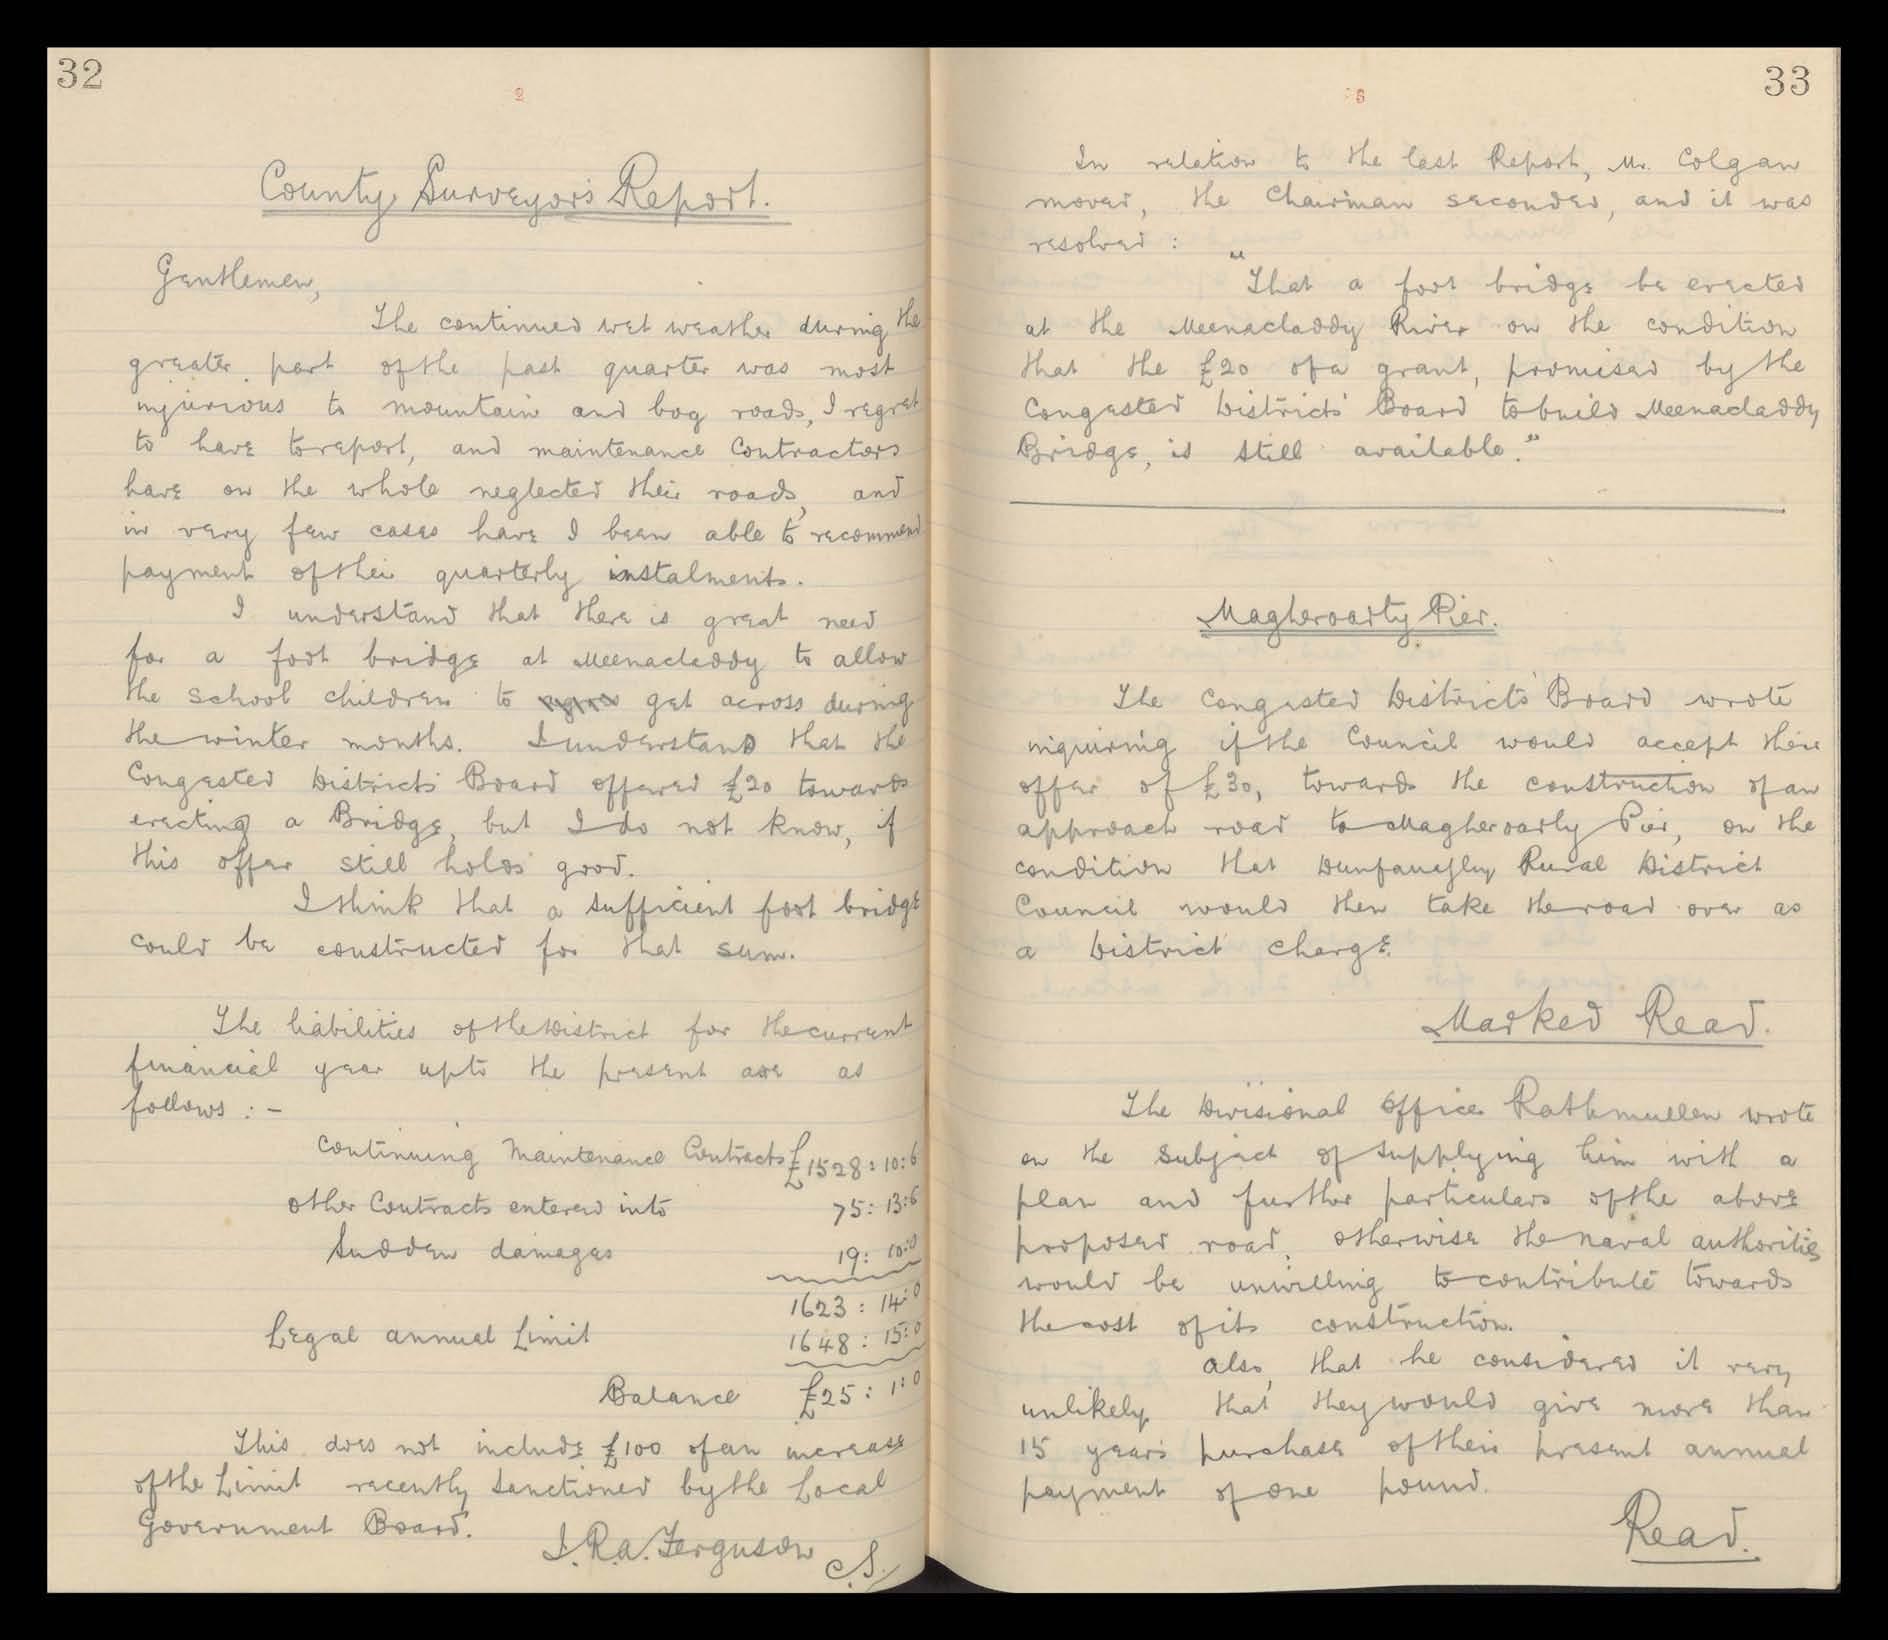 32
2
County Surveyor's Report.
Gentlemen,
The continued wet weather during the
greater part of the past quarter was most
injurious to mountain and bog roads, I regret
to have to report, and maintenance Contractors
have on the whole neglected their roads, and
in very few cases have I been able to recommend
payment of their quarterly instalments.
I understand that there is great need
for a foot bridge at Meenacladdy to allow
the school children to get across during
the winter months. I understand that the
Congested Districts Board offered £20 towards
erecting a Bridge, but I do not know, if
this offer still holds good.
I think that a sufficient foot bridge
could be constructed for that sum.
The liabilities of the District for the current
financial year up to the present are as
follows : -
Continuing Maintenance Contracts £1528 : 10 : 6
Other Contracts entered into 75 : 13 : 6
Sudden damages 19 : 10 : 0
1623 : 14 : 0
Legal annual Limit 1648 : 15 : 0
Balance £25 : 1 : 0
This does not include £100 of an increase
of the Limit recently sanctioned by the Local
Government Board.
J.R.A. Ferguson
C.S.
33
3
In relation to the last Report, Mr. Colgan
moved, the Chairman seconded, and it was
resolved :
"That a foot bridge be erected
at the Meenacladdy River on the condition
that the £20 of a grant, promised by the
Congested Districts' Board to build Meenacladdy
Bridge, is still available."
Magheroarty Pier.
The Congested Districts' Board wrote
inquiring if the Council would accept their
offer of £30, towards the construction of an
approach road to Magheroarty Pier, on the
condition that Dunfanaghy Rural District
Council would then take the road over as
a District charge.
Marked Read.
The Divisional Office Rathmullen wrote
on the subject of supplying him with a
plan and further particulars of the above
proposed road, otherwise the naval authorities
would be unwilling to contribute towards
the cost of its construction.
Also, that he considered it very
unlikely that they would give more than
15 years purchase of their present annual
payment of one pound.
Read.